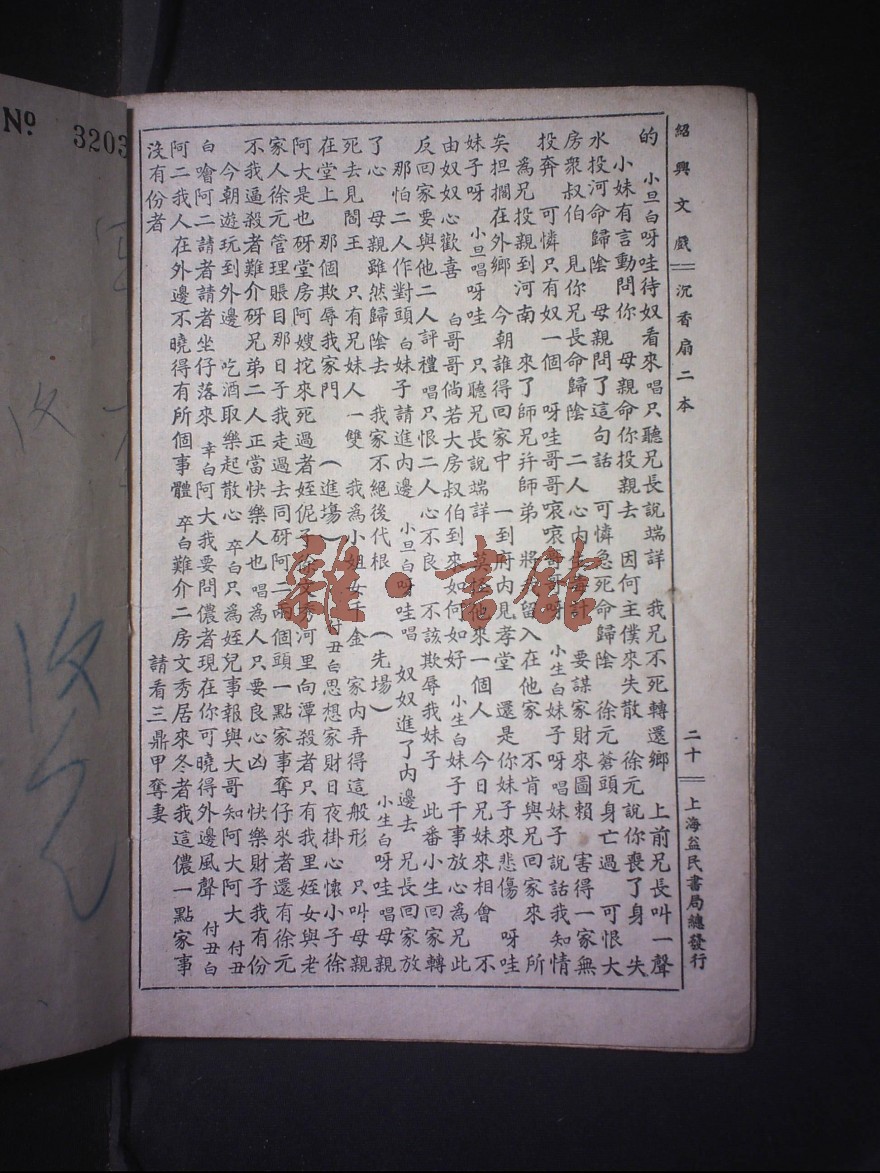 紹興文戲 沉香扇二本 二十 上海益民書局總發行
的 小旦白呀哇待奴看來唱只聽兄長說端詳 我兄不死轉還鄉 上前兄長叫一聲
小妹有言動問你 母親命你投親去 因何主僕來失散 徐元說你喪了身 失
水投河命歸陰 母親問了這句話 可憐急死命歸陰 徐元蒼頭身亡過 可恨大
房衆叔伯 見你兄長命歸陰 二人心內計 要謀家財來圖賴 害得一家無
投奔 可憐只有奴一個 呀哇哥哥哀哀哥哥呀 小生白妹子呀唱妹子說話我知情
為兄投親到河南 來了師兄幷師弟 將留入在他家 不肯與兄回家來 所
矣担擱在外鄉 今朝誰得回家中 一到府內見孝堂 還是你妹子來悲傷 呀哇
妹子呀 小旦唱呀哇 只聽兄長說端詳 莫他來一個人 今日兄妹來相會 不
由奴奴心歡喜 白哥哥倘若大房叔伯到來如何如好 小生白妹子干事放心為兄此
反回家要與他二人評禮唱只恨二人心不良 不該欺辱我妹子 此番小生回家轉
那怕二人作對頭白妹子請進內邊 小旦白呀哇唱 奴奴進了內邊去 兄長回家放
了心 母親雖然歸陰去 我家不絕後代根 (先場) 小生白呀哇唱母親
死去見閻王 只有兄妹人一雙 我為小姐女千金 家內弄得這般形 只叫母親
在堂上 那個欺辱我家門 (進塲) 付丑白思想家財日夜掛心懷小子徐
阿大是也砑堂房阿嫂挖來死過者姪伲子徐文秀河里向潭殺者只有我里姪女與老
家人徐元管理賬目那日子我走過去同砑阿二兩個頭一點家事奪仔來者還有徐元
不我逼殺者難介砑兄弟二人正當快樂人也 唱為人只要良心凶 快樂財子我有份
今朝遊玩到外邊 吃酒取樂起散心 卒白只為姪兒事報與大哥知阿大阿大 付丑
白噲阿二請者請者坐仔落來 幸白阿大我要問儂者現在你可曉得外邊風聲 付丑白
阿二我人在外邊不曉得有所個事體 卒白難介二房文秀居來冬者我這儂一點家事
沒有份者 請看三鼎甲奪妻
№ 3203